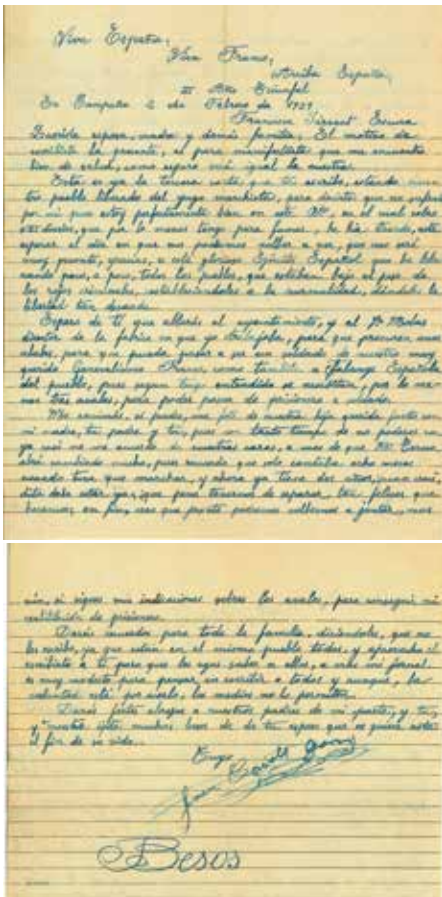 Viva España,
Viva Franco,
Arriba España,
III Año Triunfal
En Campaña 2 de Febrero de 1939
Francisca
Querida esposa, madre y demás familia, El motivo de
escribirte la presente, es para manifestarte que me encuentro
bien de salud, como espero sea igual la vuestra.
Esta es ya la tercera carta que te escribo, estando nues
tro pueblo librado del yugo marxista, para decirte que no sufras
por mi que estoy perfectamente bien en este Bón, en el cual cobro
que por lo menos tengo para fumar,
esperar el día en que nos podamos volver a ver, que sea
muy pronto, gracias, a este glorioso Ejército Español que ha libe
rando paso, a paso, todos los pueblos, que estaban bajo el peso de
los rojos criminales, estableciéndolos a la normalidad, dándole la
libertad tan deseada.
Espero de ti que al ayuntamiento, y al Sr. Molas
director de la fabrica en que yo trabajaba, para que procuren unos
avales, para que pueda, pasar a ser un soldado de nuestro muy
querido Generalísimo Franco, como también a Falange Española
del pueblo, pues según tengo entendido se necesitan, por lo me
nos tres avales, para poder pasar de prisionero a soldado.
si puedes, una foto de nuestra hija querida junto con
mi madre, tu padre y tú, pues con tanto tiempo de no poderos ver
ya casi no me acuerdo de vuestras caras, a mas de que
habrá cambiado mucho, pues recuerdo que solo contaba ocho meses
cuando tuve que marchar, y ahora ya tiene dos años,
debe estar ya, que pena tenernos de separar tan felices que
éramos, en fin, creo que pronto podremos volvernos a juntar, mas
aún, si sigues mis indicaciones sobre los avales, para conseguir mi
de prisionero.
Darás recuerdos para toda la familia, diciéndoles, que no
les escribo, ya que están en el mismo pueblo todos, y aprovecho el
escribirte a ti para que les hagas saber a ellos, a mas mi jornal
es muy modesto para pensar, en escribir a todos y aunque, la
voluntad está por hacerlo, los medios no lo permiten.
Darás fuerte abrazo a nuestros padres de mi parte, y tu,
y nuestra hija muchos besos de tu esposo que os quiere hasta
el fin de su vida.
Besos